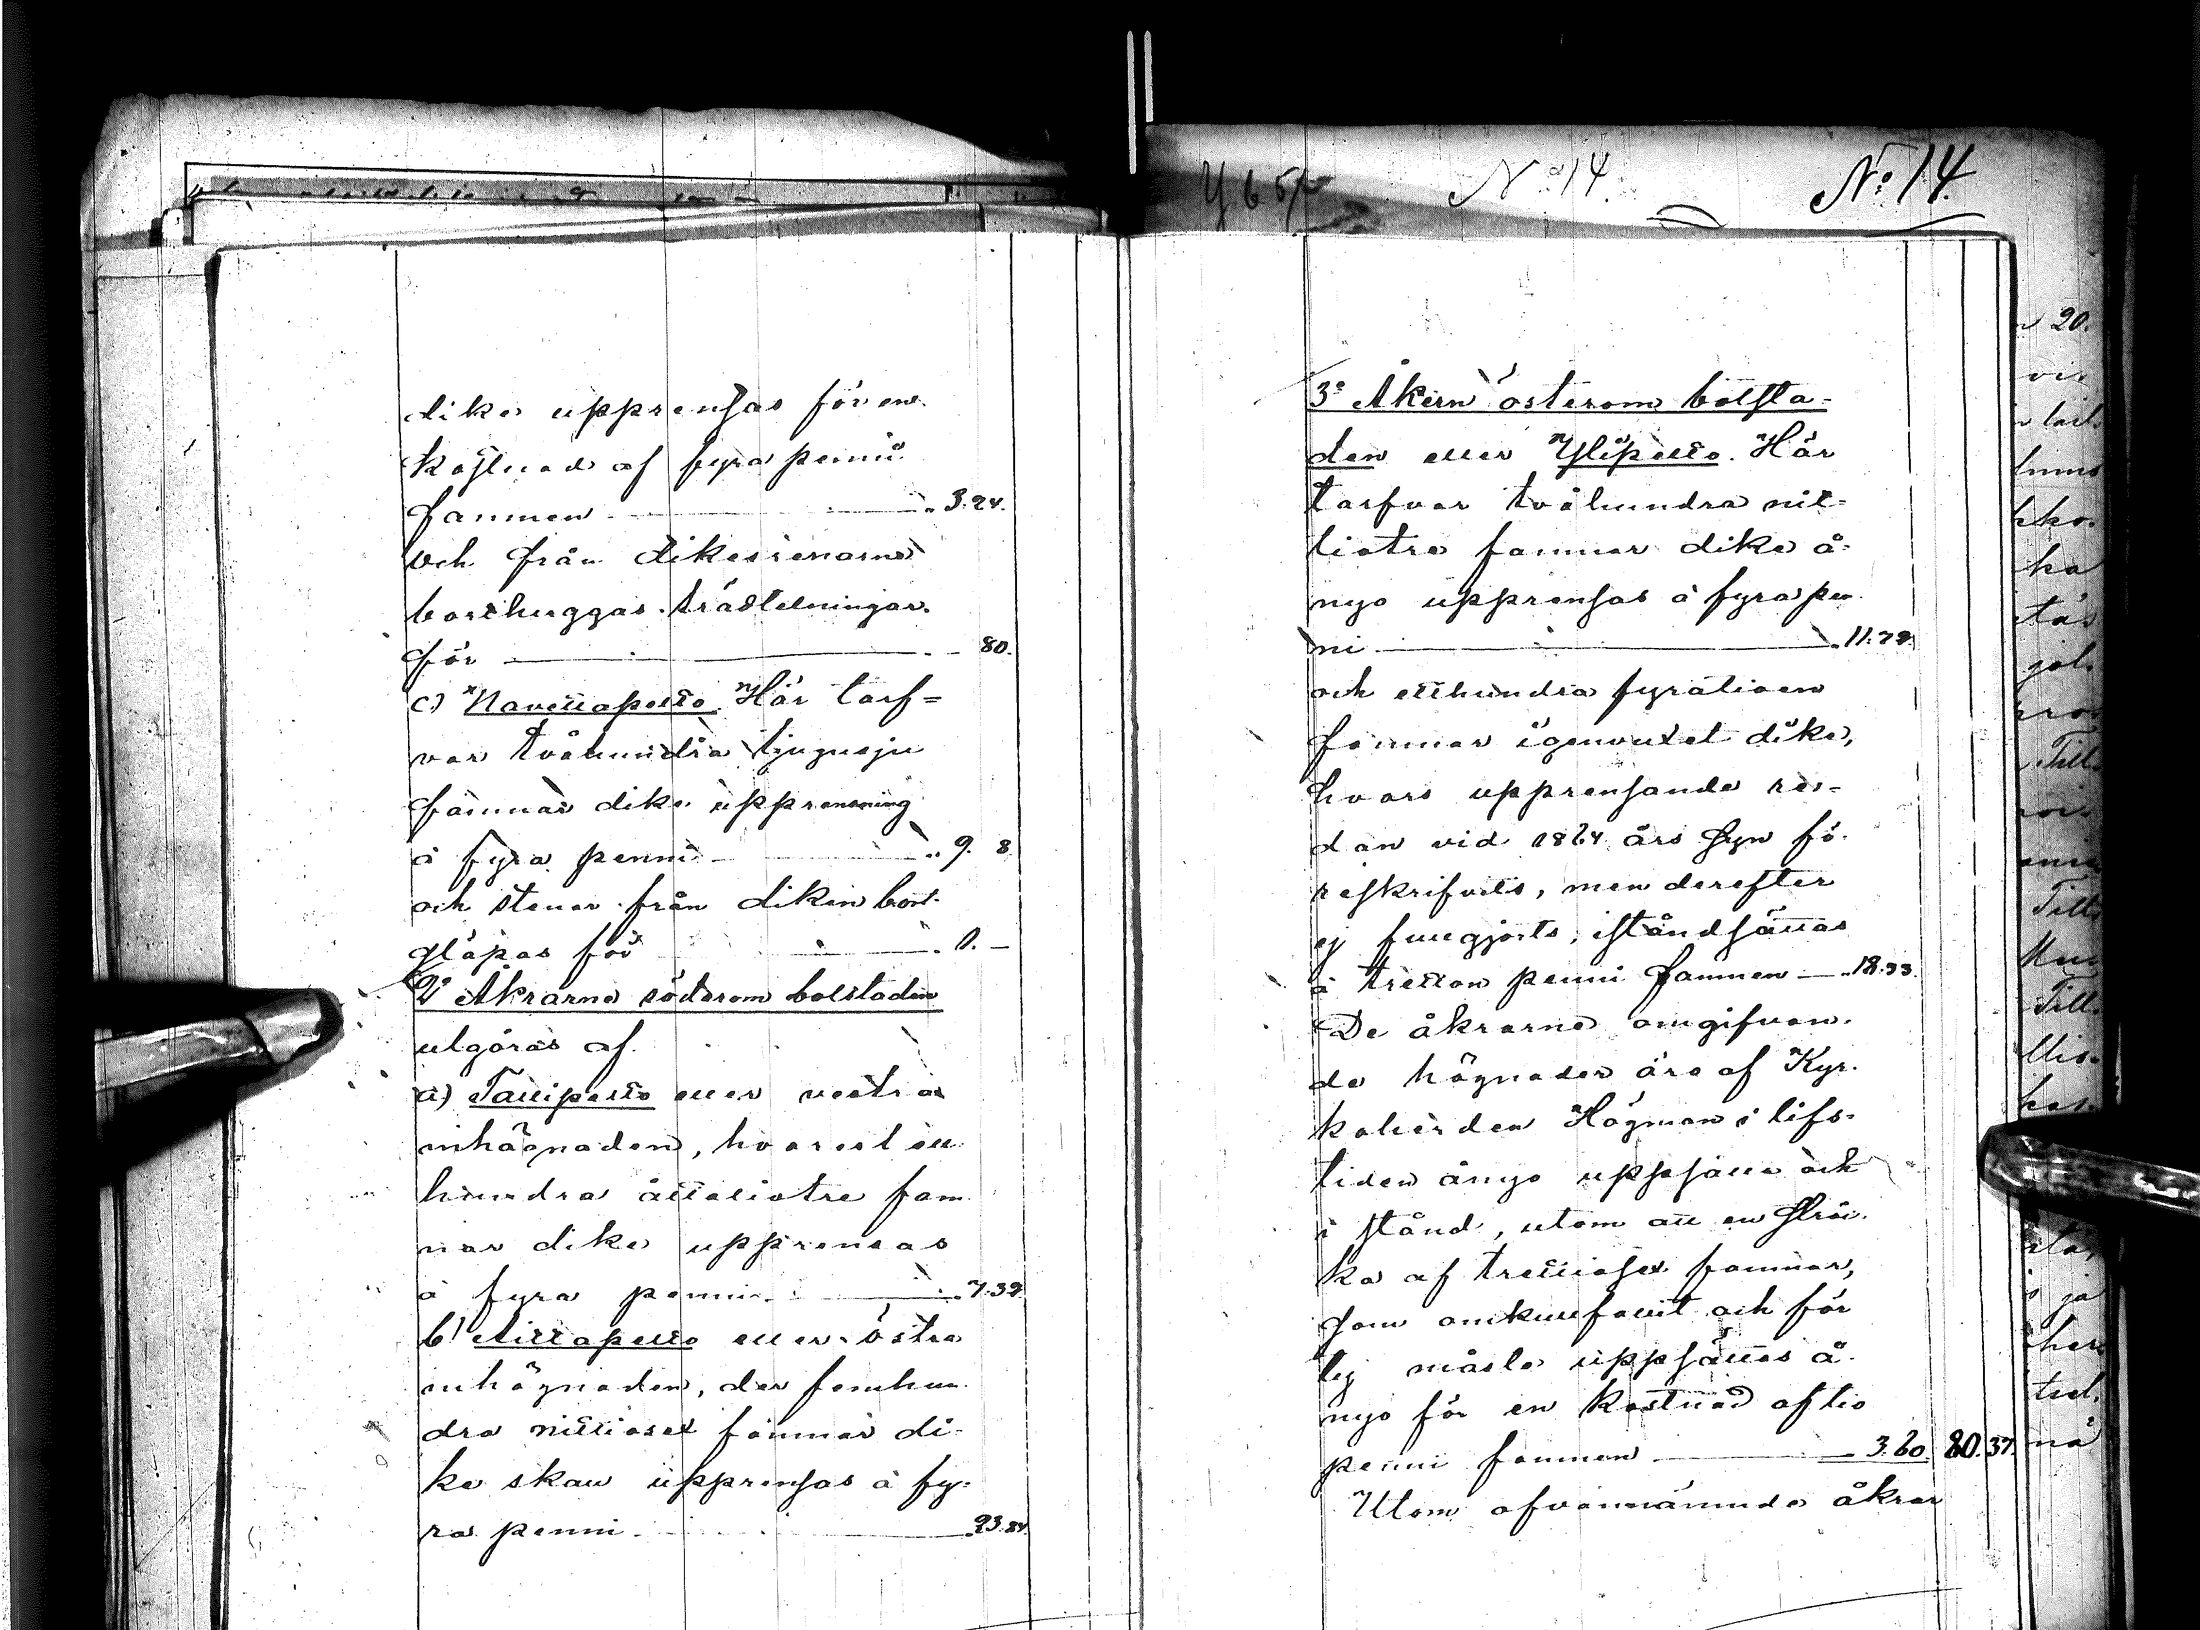 dike upprensas för en
kostnad af fyra penni
famnen " 3.24.
och från dikesrenarne
borthuggas trädtelningar
för " 80.
c) Navettapelto. Här tarf=
var tvåhundra tjugusju
famnar dike upprensning
à fyra penni " 9. 8
och stenar från diken bort-
släpas för " 1. —
2:o Åkrarne söderom bolstaden
utgöras af
a) Tallipelto eller vestra
inhägnaden, hvarest ett
hundra åttatiofyra fam
nar dike upprensas
à fyra penni " 7.32
b) Aittapelto eller östra
inhägnaden, der femhun
dra nittiosex famnar di-
ke skall upprensas à fy-
ra penni 23.84
Y. 65
No 14.
No 14.
3:o Åkern österom bolsta-
den eller Ylipelto. Här
tarfvar tvåhundra nit-
tiofyra famnar dike å-
nyo upprensas à fyra pen
ni " 11.72.
och etthundra fyratioen
famnar igenvuxet dike,
hvars upprensande re-
dan vid 1864 års syn fö-
reskrifvits, men derefter
ej fullgjorts, iståndsättas
à tretton penni famnen — " 18.33.
De åkrarne omgifvan-
de hägnader äro af Kyr-
koherden Högman i lifs-
tiden ånyo uppsatte och
i stånd, utom att en sträc-
ka af trettiosex famnar,
som omkullfallit och för
ty måste uppsättas å-
nyo för en kostnad af tio
penni famnen — 3.60. 80.37.
Utom ofvannämnde åkrar